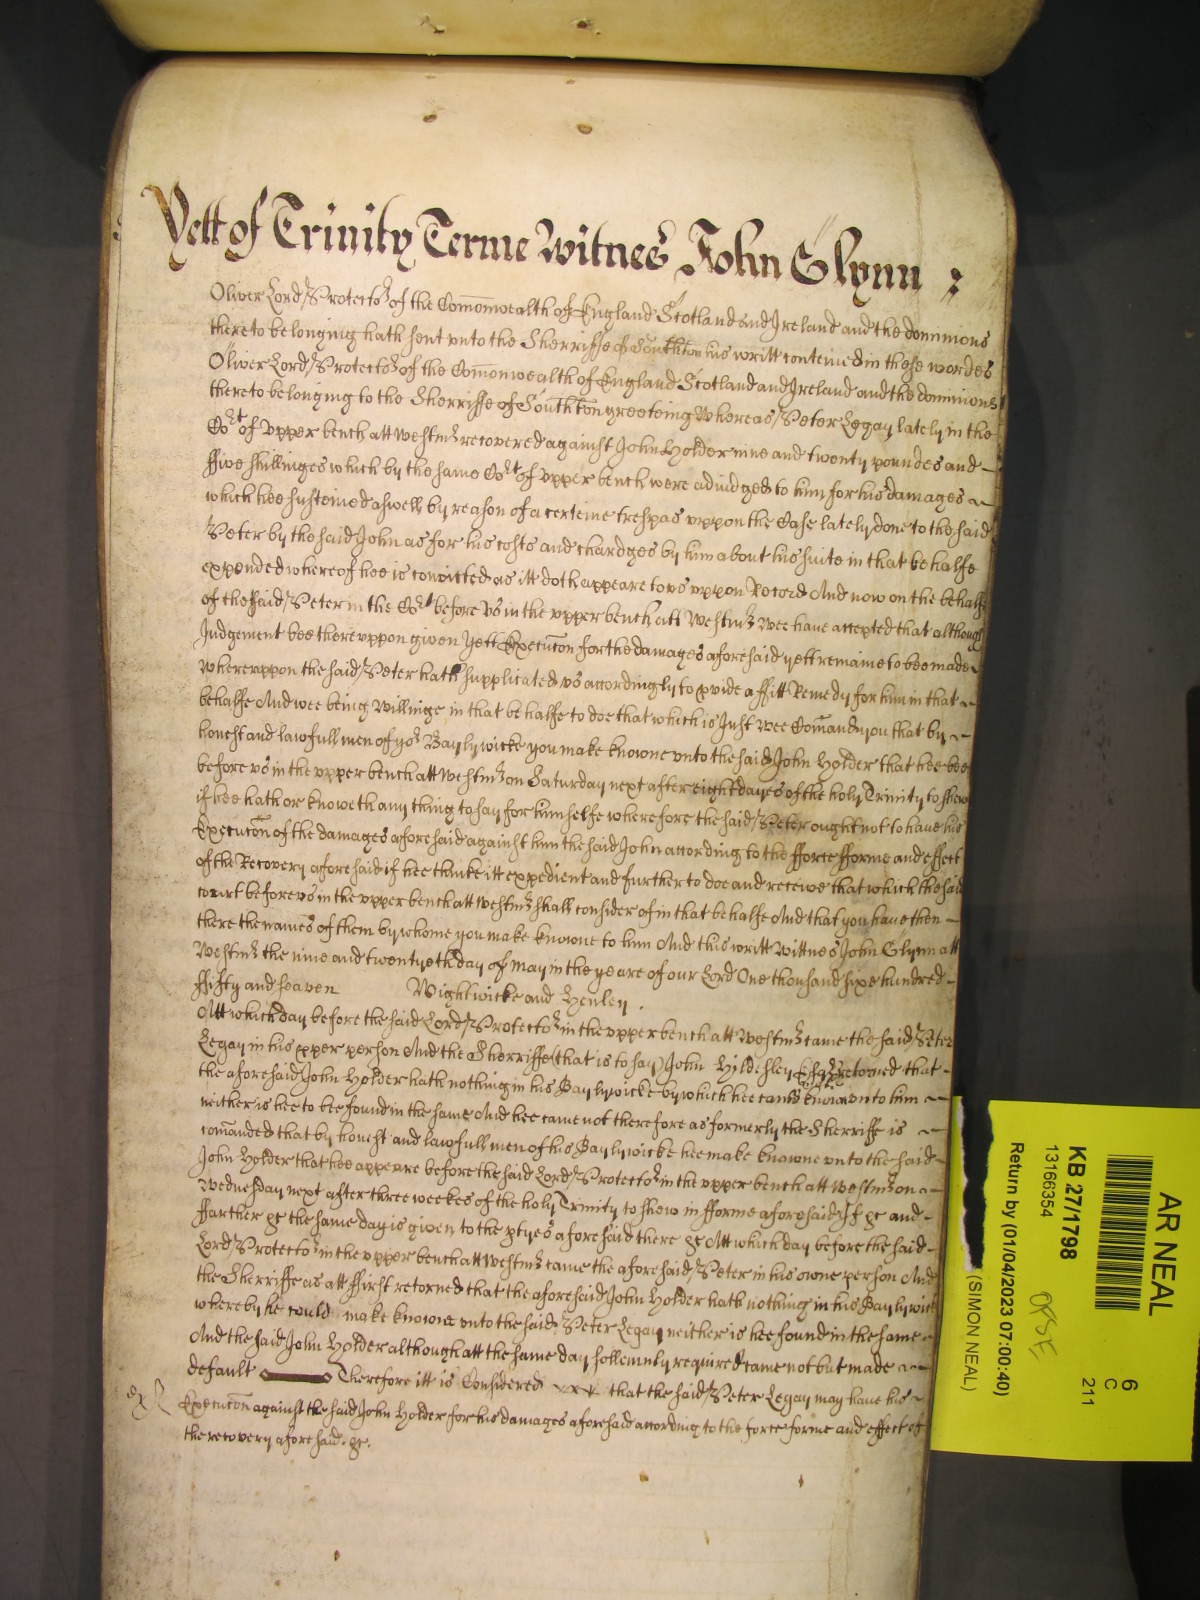 Yett of Trinity Terme Witnes John Glynn
Oliver Lord Protector of the Com̄onwealth of England Scotland and Ireland and the dominions
thereto belonging hath sent vnto the Sherriffe of Southton his writt conteined in these wordes
Oliver Lord Protector of the Com̄onwealth of England Scotland and Ireland and the dominions
thereto belonging to the Sherriffe of Southton greeteing Whereas Peter Legay lately in the
Cort of vpper bench att Westmr recovered against John Holder nine and twenty poundes and
ffive shillinges which by the same Cort of vpper bench were adiudged to him for his damages
which hee susteined aswell by reason of a certeine trespas vppon the Case lately done to the said
Peter by the said John as for his costs and chardges by him about his suite in that behalfe
expended whereof hee is convicted as itt doth appeare to vs vppon Record And now on the behalfe
of the said Peter in the Cort before vs in the vpper bench att Westmr wee haue accepted that although
Judgement bee therevppon given Yett Execucōn for the damages aforesaid yett remaine to bee made
wherevppon the said Peter hath supplicated vs accordingly to pvide a ffitt Remedy for him in that
behalfe And wee being willinge in that behalfe to doe that which is Just wee Com̄and you that by
honest and lawfull men of yor Baylywicke you make knowne vnto the said John Holder that hee bee
before vs in the vpper bench att Westmr on Saturday next after eight dayes of the holy Trinity to shew
if hee hath or knoweth any thing to say for himselfe wherefore the said Peter ought not to haue his
Execucōn of the damages aforesaid against him the said John according to the fforce fforme and effect
of the Recovery aforesaid if hee thinke itt expedient and further to doe and receive that which the said
court before vs in the vpper bench att Westmr shall consider of in that behalfe And that you haue then
there the names of them by whome you make knowne to him And this writt Wittnes John Glynn att
Westmr the nine and twentyeth day of may in the yeare of our Lord One thousand sixe hundred
ffifty and seaven Wightwicke and Henley.
Att which day before the said Lord Protector in the vpper bench att Westmr came the said Peter
Legay in his pper person And the Sherriffe (that is to say) John Hildesley Esqr retorned that
the aforesaid John Holder hath nothing in his Baylywicke by which hee can make knowne vnto him
neither is hee to bee found in the same And hee came not therefore as formerly the Sherriffe is
com̄anded that by honest and lawfull men of his Baylywicke hee make knowne vnto the said
John Holder that hee appeare before the said Lord Protector in the vpper bench att Westmr on
Wednesday next after three weekes of the holy Trinity to shew in fforme aforesaid If &c and
ffarther &c the same day is given to the ptyes aforesaid there &c Att which day before the said
Lord Protector in the vpper bench att Westmr came the aforesaid Peter in his owne person And
the Sherriffe as att ffirst retorned that the aforesaid John Holder hath nothing in his Baylywick
whereby he could make knowne vnto the said Peter Legay neither is hee found in the same
And the said John Holder although att the same day sollemnly required came not but made
default Therefore itt is Considered that the said Peter Legay may haue his
Execucōn against the said John Holder for his damages aforesaid according to the force forme and effect of
the recovery aforesaid. &c.
AR NEAL
6
C
211
KB 27/1798
13166354
ORSF
Return by (01/04/2023 07:00:40)
(SIMON NEAL)